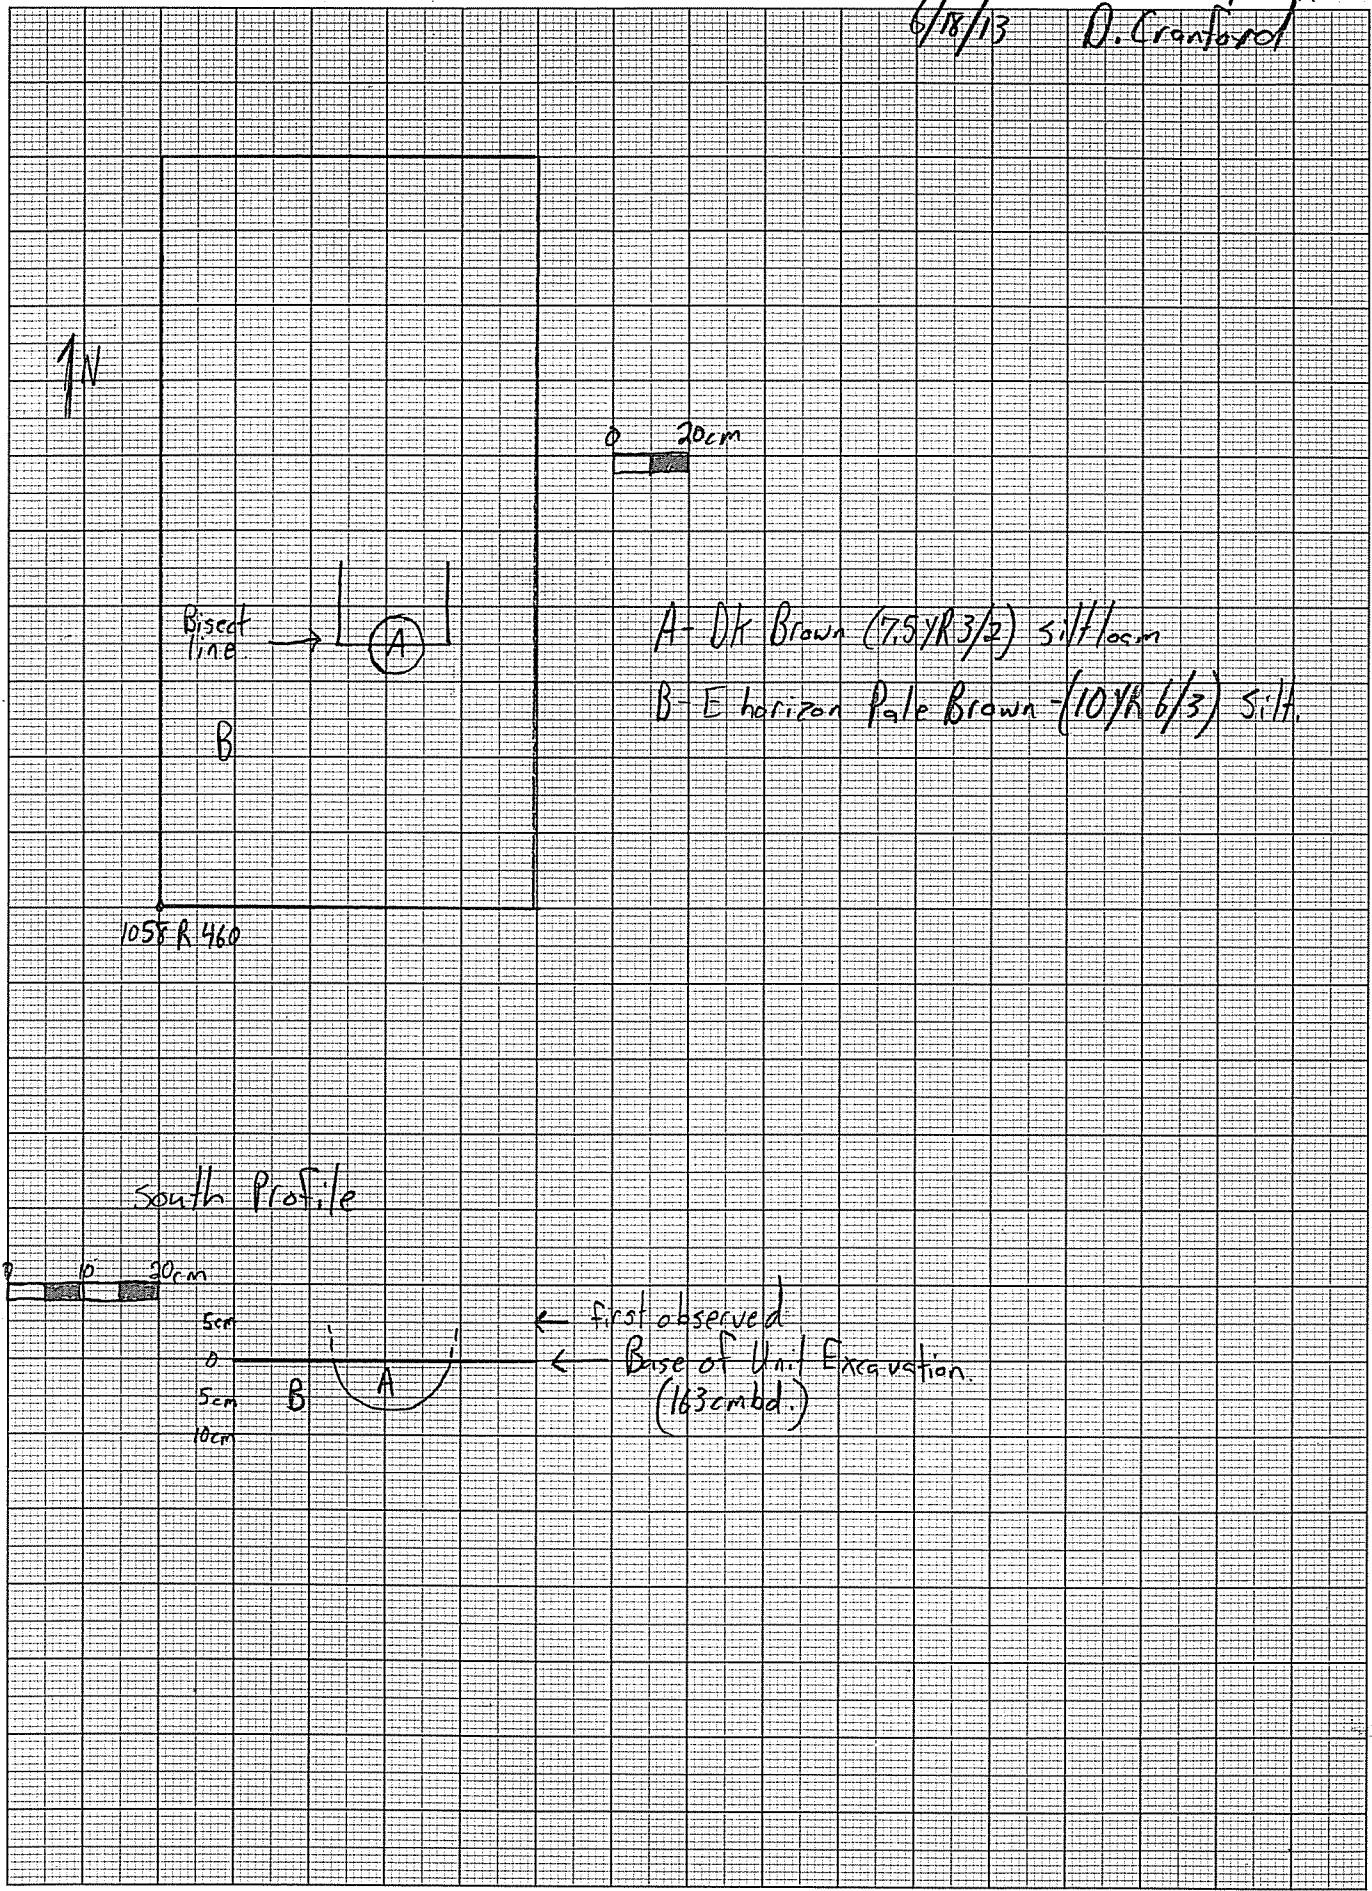 6/18/13 D. Cranford
N
0 20cm
Bisect
line
A
A- Dk Brown (7.5YR 3/2) silt loam
B- E horizon Pale Brown -(10YR 6/3) Silt.
B
1058 R 460
South Profile
0 10 20cm
5cm
first observed
0
Base of Unit Excavation.
5cm
B
A
(163cmbd.)
10cm